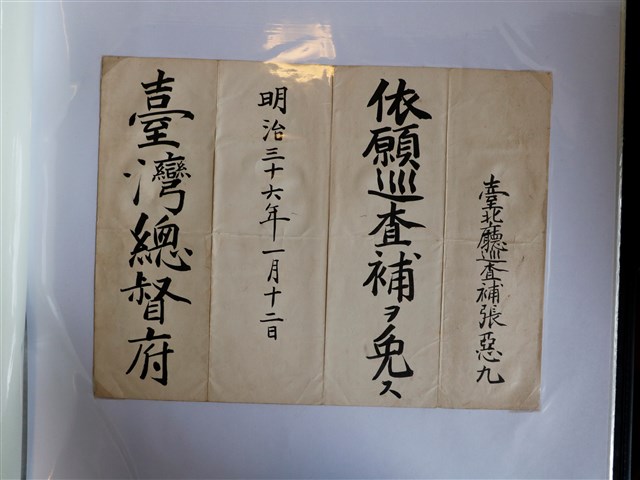 臺北廳巡査補張惡九
依願巡査補ヲ免ス
明治三十六年一月十二日
臺灣總督府